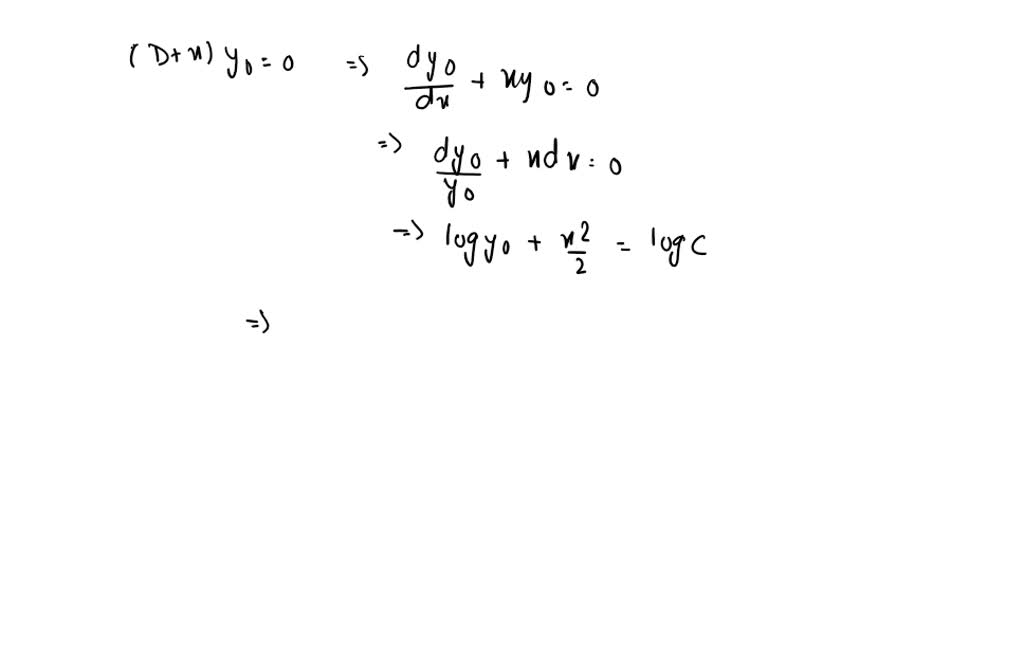 (D+x) y₀ = 0 ⇒ dy₀/dx + xy₀ = 0
⇒ dy₀/y₀ + xdx = 0
⇒ log y₀ + x²/2 = log C
⇒